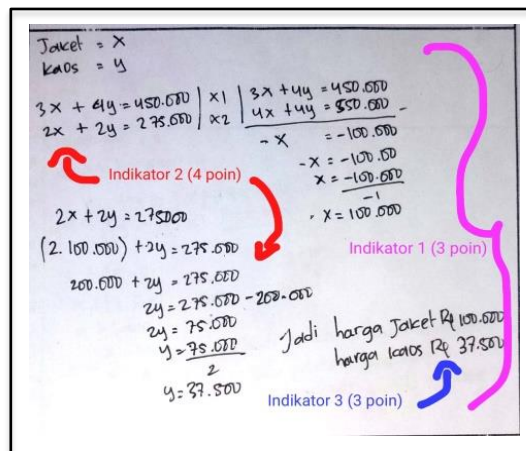 Jaket = X
kaos = y
3x + 4y = 450.000 | x1 | 3x + 4y = 450.000
2x + 2y = 275.000 | x2 | 4x + 4y = 550.000 -
-x = -100.000
-x = -100.00
x = -100.000
-1
x = 100.000
Indikator 2 (4 poin)
2x + 2y = 275000
(2.100.000) + 2y = 275.000
200.000 + 2y = 275.000
2y = 275.000 - 200.000
2y = 75.000
y = 75.000
2
y = 37.500
Indikator 1 (3 poin)
Jadi harga Jaket Rp 100.000
harga kaos Rp 37.500
Indikator 3 (3 poin)